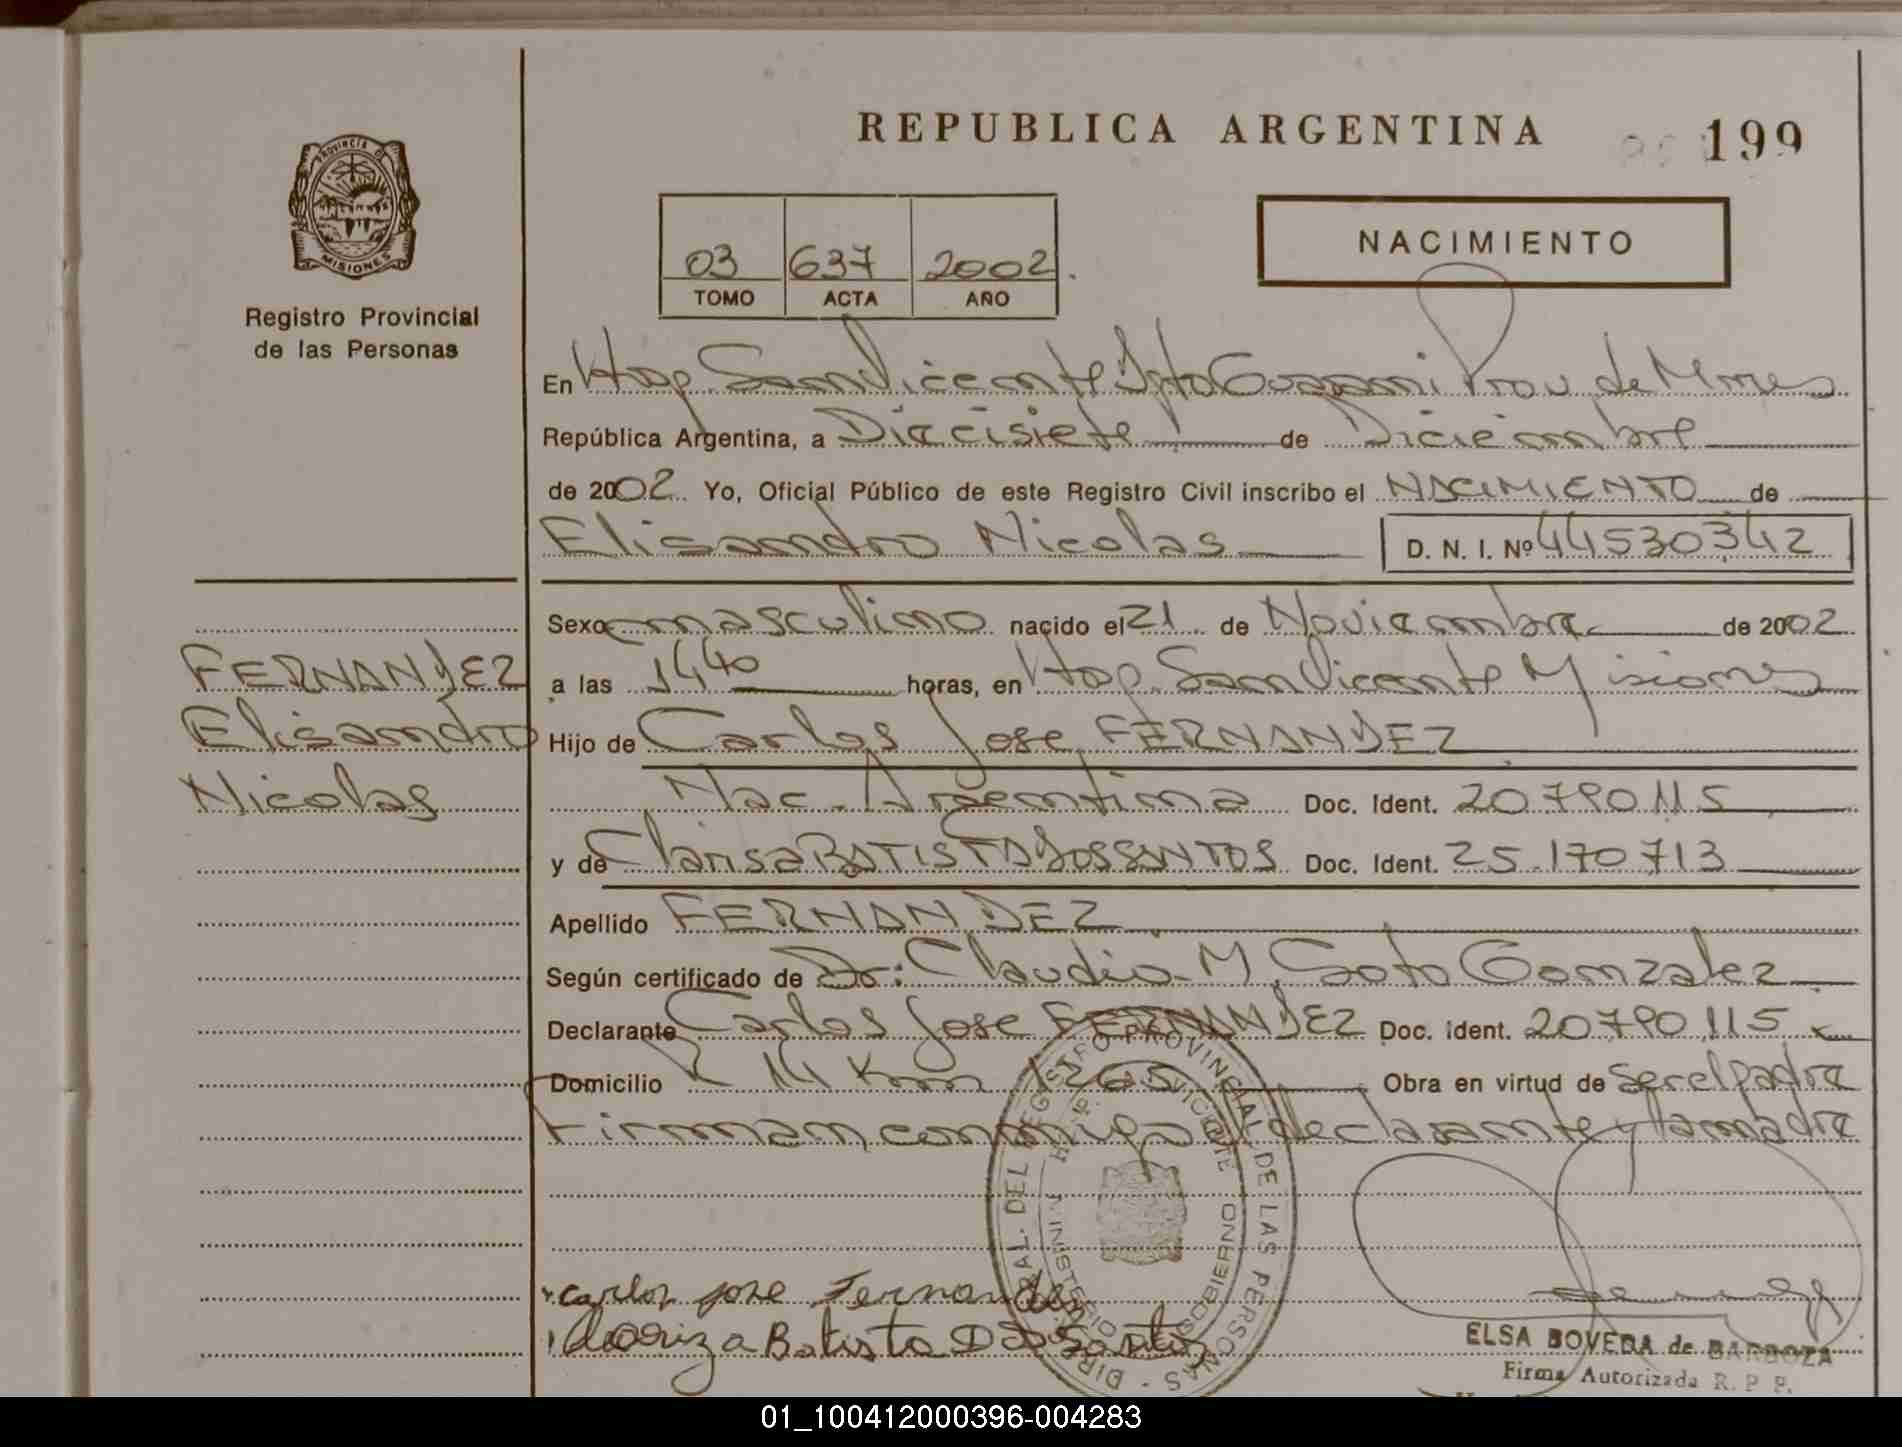 REPUBLICA ARGENTINA
199
PROVINCIA DE
MISIONES
Registro Provincial
de las Personas
03 637 2002
TOMO ACTA AÑO
NACIMIENTO
En Hosp. San Vicente Dpto Guarani Prov. de Mnes
República Argentina, a Diecisiete de Diciembre
de 2002 Yo, Oficial Público de este Registro Civil inscribo el NACIMIENTO de
Elisandro Nicolas D. N. I. Nº 44530342
Sexo masculino nacido el 21 de Noviembre de 2002
a las 1440 horas, en Hosp. San Vicente Misiones
Hijo de Carlos Jose FERNANDEZ
Nac. Argentina Doc. Ident. 20.790.115
y de Clarisa BATISTA DOSSANTOS Doc. Ident. 25.170.713
Apellido FERNANDEZ
Según certificado de Dr: Claudio M Soto Gonzalez
Declarante Carlos Jose FERNANDEZ Doc. Ident. 20.790.115
Domicilio R 14 Km 1265 Obra en virtud de ser el padre
Firman conmigo el declarante y la madre
FERNANDEZ
Elisandro
Nicolas
DIRECCION GRAL. DEL REGISTRO PROVINCIAL DE LAS PERSONAS
MINISTERIO GOBIERNO
VICENTE
carlos jose Fernandez
Batista Dos Santos
ELSA BOVEDA de BARBOZA
Firma Autorizada R. P. P.
01_100412000396-004283